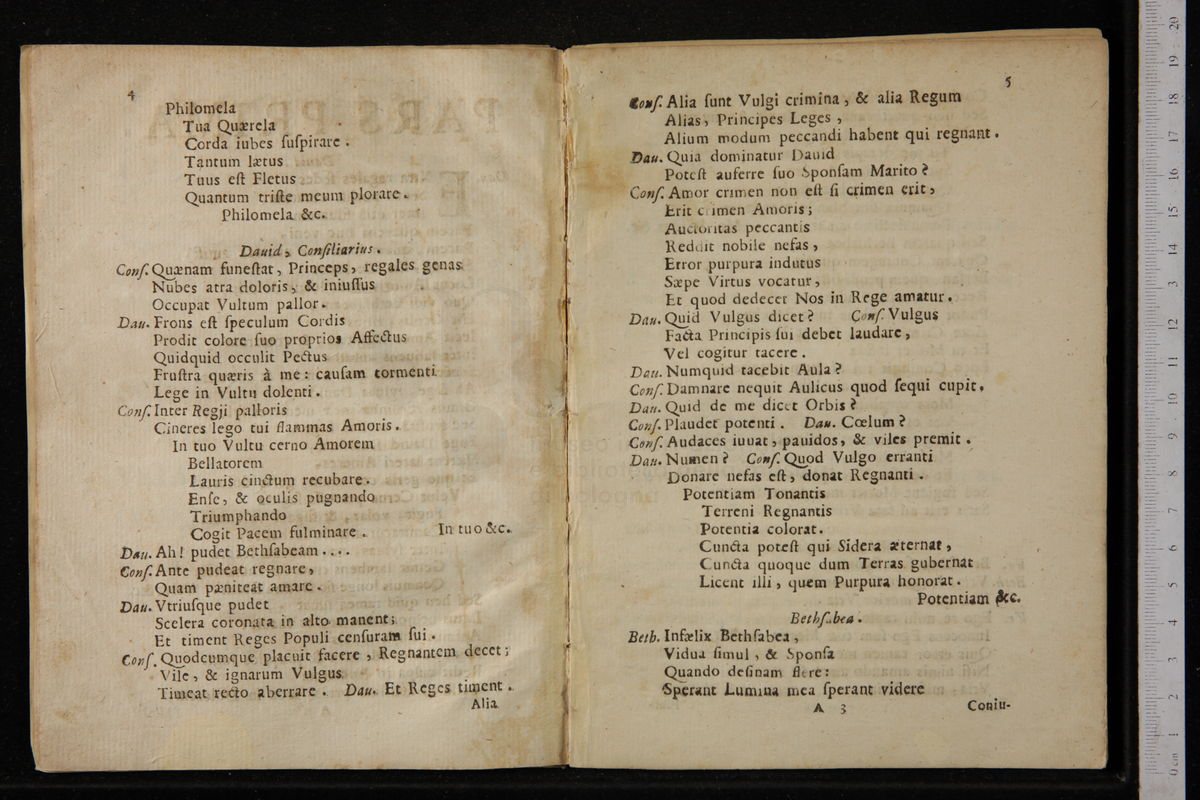 4
Philomela
Tua Quærela
Corda iubes ſuſpirare .
Tantum lætus
Tuus eſt Fletus
Quantum triſte meum plorare .
Philomela &c.
Dauid, Conſiliarius .
Conſ. Quænam funeſtat, Princeps, regales genas
Nubes atra doloris, & iniuſſus
Occupat Vultum pallor .
Dau. Frons eſt ſpeculum Cordis
Prodit colore ſuo proprios Affectus
Quidquid occulit Pectus
Fruſtra quæris à me : cauſam tormenti
Lege in Vultu dolenti .
Conſ. Inter Regij palloris
Cineres lego tui flammas Amoris .
In tuo Vultu cerno Amorem
Bellatorem
Lauris cinctum recubare .
Enſe, & oculis pugnando
Triumphando
Cogit Pacem fulminare . In tuo &c.
Dau. Ah! pudet Bethſabeam . . . .
Conſ. Ante pudeat regnare,
Quam pæniteat amare .
Dau. Vtriuſque pudet
Scelera coronata in alto manent;
Et timent Reges Populi cenſuram ſui .
Conſ. Quodcumque placuit facere , Regnantem decet ;
Vile , & ignarum Vulgus
Timeat recto aberrare . Dau. Et Reges timent .
Alia
5
Conſ. Alia ſunt Vulgi crimina , & alia Regum
Alias, Principes Leges ,
Alium modum peccandi habent qui regnant .
Dau. Quia dominatur Dauid
Poteſt auferre ſuo Sponſam Marito ?
Conſ. Amor crimen non eſt ſi crimen erit ,
Erit crimen Amoris ;
Auctoritas peccantis
Reddit nobile nefas ,
Error purpura indutus
Sæpe Virtus vocatur ,
Et quod dedecet Nos in Rege amatur .
Dau. Quid Vulgus dicet ? Conſ. Vulgus
Facta Principis ſui debet laudare ,
Vel cogitur tacere .
Dau. Numquid tacebit Aula ?
Conſ. Damnare nequit Aulicus quod ſequi cupit .
Dau. Quid de me dicet Orbis ?
Conſ. Plaudet potenti . Dau. Cœlum ?
Conſ. Audaces iuuat , pauidos, & viles premit .
Dau. Numen ? Conſ. Quod Vulgo erranti
Donare nefas eſt , donat Regnanti .
Potentiam Tonantis
Terreni Regnantis
Potentia colorat .
Cuncta poteſt qui Sidera æternat ,
Cuncta quoque dum Terras gubernat
Licent illi , quem Purpura honorat .
Potentiam &c.
Bethſabea .
Beth. Infælix Bethſabea ,
Vidua ſimul , & Sponſa
Quando deſinam flere :
Sperant Lumina mea ſperant videre
A 3 Coniu-